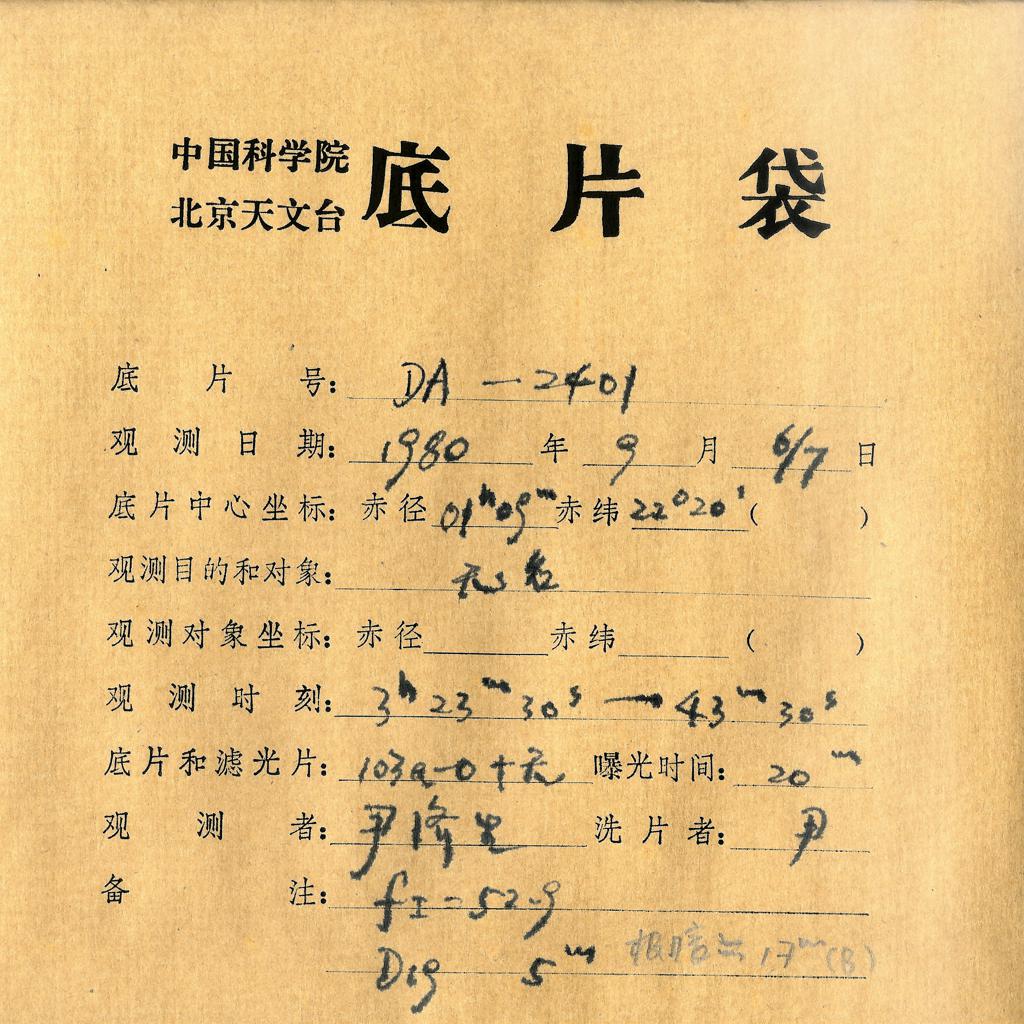 中国科学院
北京天文台
底片袋
底片号: DA-2401
观测日期: 1980年9月6/7日
底片中心坐标: 赤径 01h09m 赤纬 22°20′ ( )
观测目的和对象:
观测对象坐标: 赤径 赤纬 ( )
观测时刻: 3h23m30s — 43m30s
底片和滤光片: 103a-O+无 曝光时间: 20m
观测者: 尹济生 洗片者: 尹
备注: fI=52.9
D19 5m 极暗 17m(B)